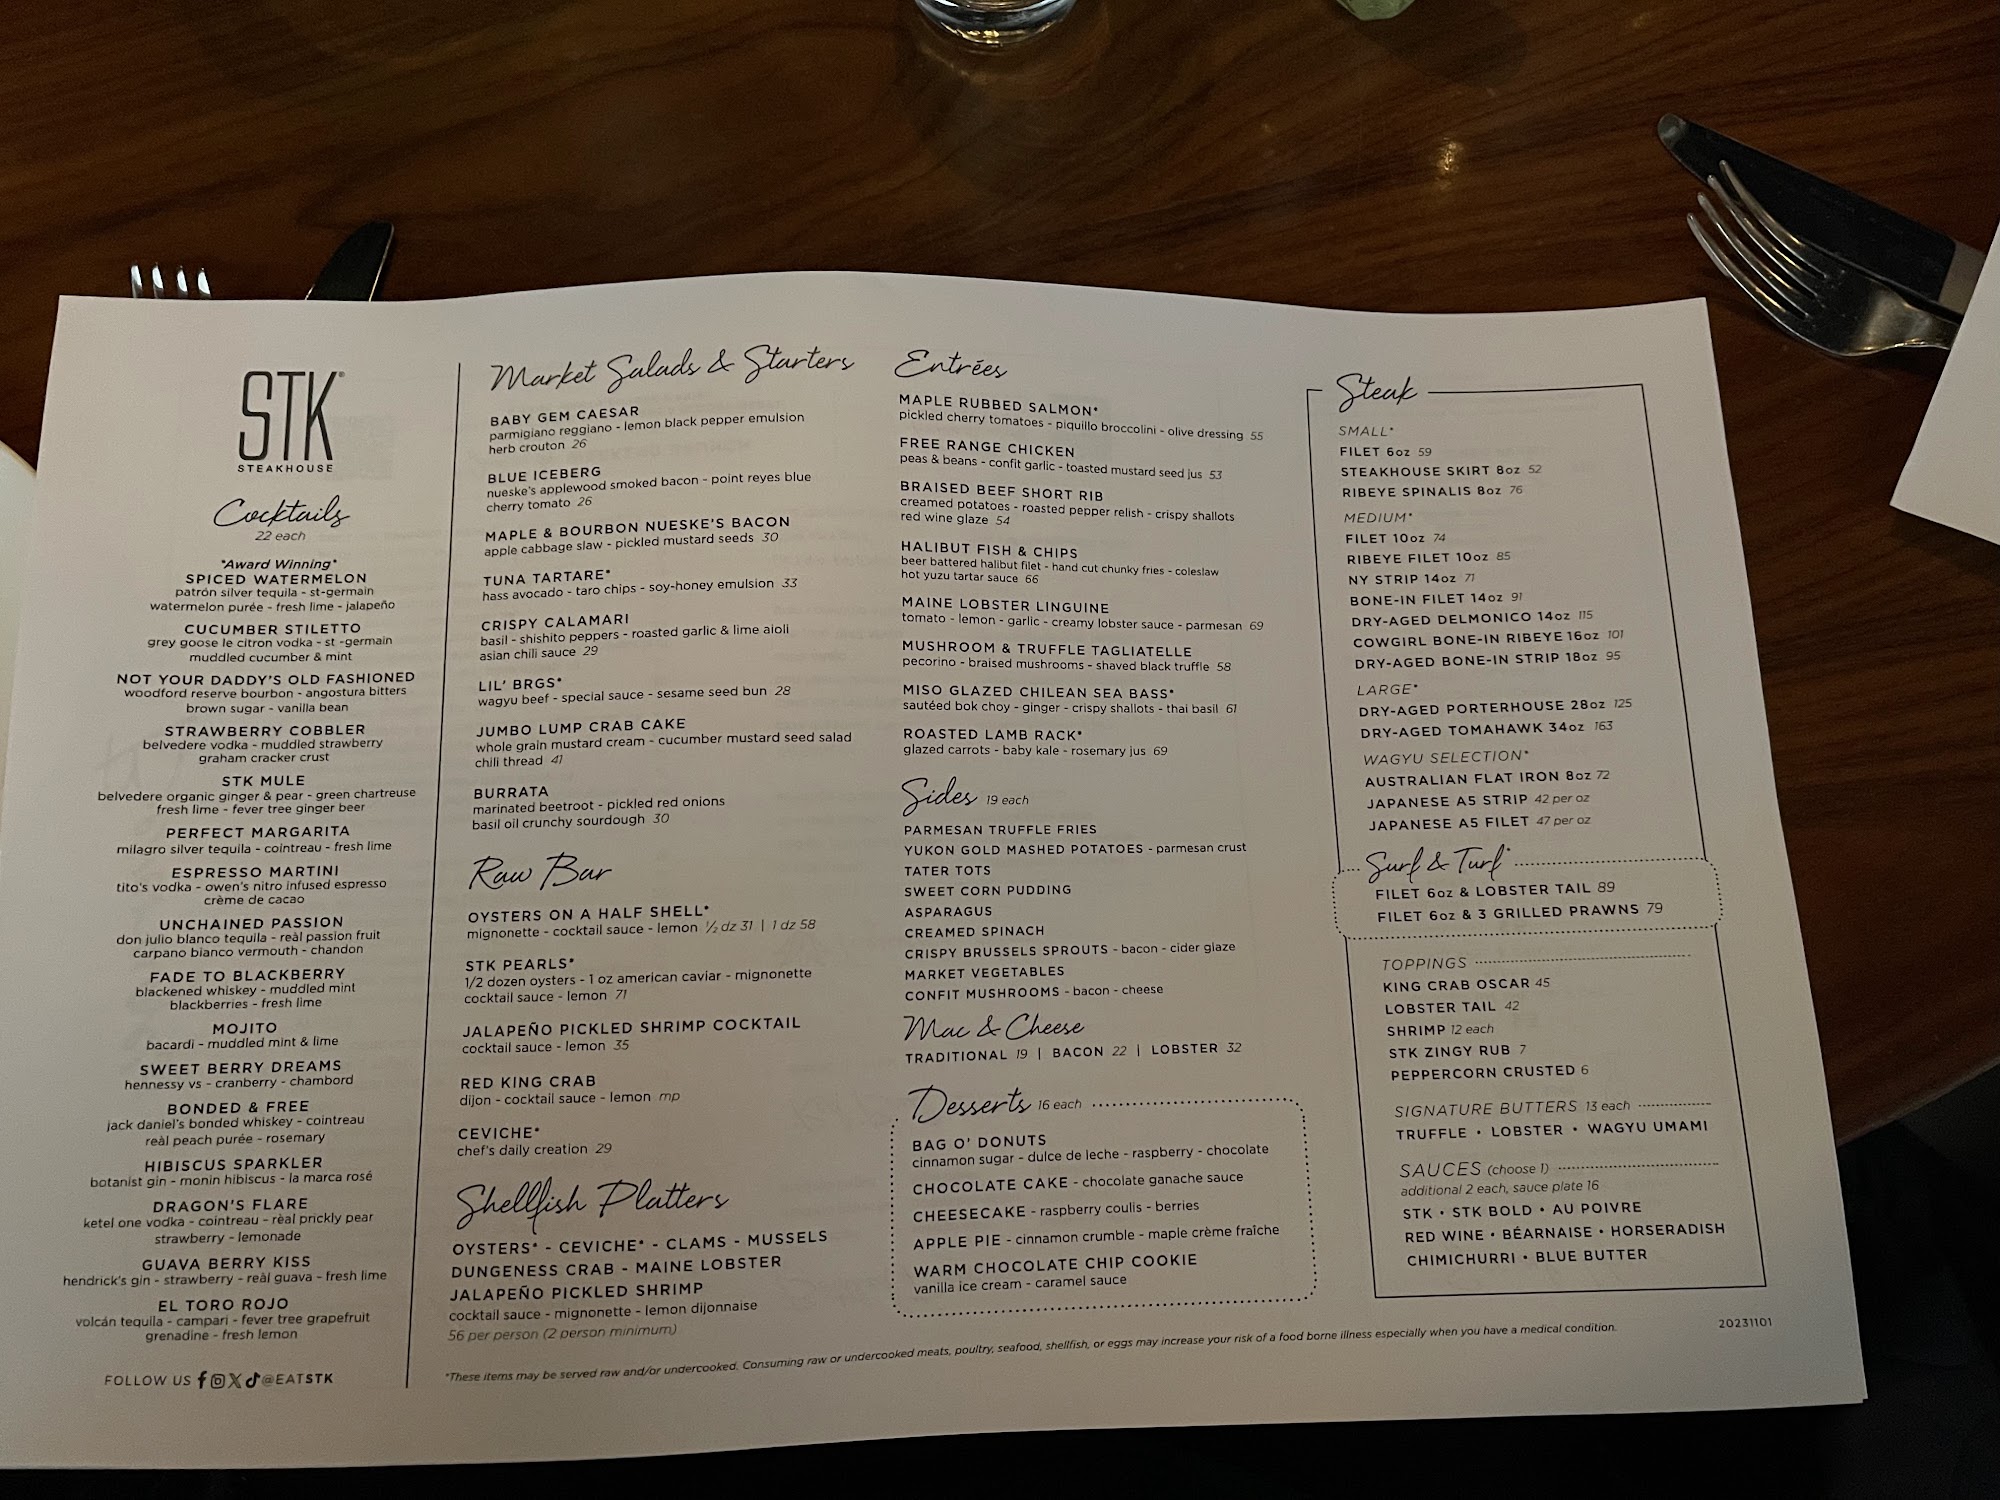 STK®
STEAKHOUSE
Cocktails
22 each
*Award Winning*
SPICED WATERMELON
patrón silver tequila - st-germain
watermelon purée - fresh lime - jalapeño
CUCUMBER STILETTO
grey goose le citron vodka - st -germain
muddled cucumber & mint
NOT YOUR DADDY'S OLD FASHIONED
woodford reserve bourbon - angostura bitters
brown sugar - vanilla bean
STRAWBERRY COBBLER
belvedere vodka - muddled strawberry
graham cracker crust
STK MULE
belvedere organic ginger & pear - green chartreuse
fresh lime - fever tree ginger beer
PERFECT MARGARITA
milagro silver tequila - cointreau - fresh lime
ESPRESSO MARTINI
tito's vodka - owen's nitro infused espresso
crème de cacao
UNCHAINED PASSION
don julio blanco tequila - reàl passion fruit
carpano bianco vermouth - chandon
FADE TO BLACKBERRY
blackened whiskey - muddled mint
blackberries - fresh lime
MOJITO
bacardi - muddled mint & lime
SWEET BERRY DREAMS
hennessy vs - cranberry - chambord
BONDED & FREE
jack daniel's bonded whiskey - cointreau
reàl peach purée - rosemary
HIBISCUS SPARKLER
botanist gin - monin hibiscus - la marca rosé
DRAGON'S FLARE
ketel one vodka - cointreau - rèal prickly pear
strawberry - lemonade
GUAVA BERRY KISS
hendrick's gin - strawberry - reàl guava - fresh lime
EL TORO ROJO
volcán tequila - campari - fever tree grapefruit
grenadine - fresh lemon
FOLLOW US @EATSTK
Market Salads & Starters
BABY GEM CAESAR
parmigiano reggiano - lemon black pepper emulsion
herb crouton 26
BLUE ICEBERG
nueske's applewood smoked bacon - point reyes blue
cherry tomato 26
MAPLE & BOURBON NUESKE'S BACON
apple cabbage slaw - pickled mustard seeds 30
TUNA TARTARE*
hass avocado - taro chips - soy-honey emulsion 33
CRISPY CALAMARI
basil - shishito peppers - roasted garlic & lime aioli
asian chili sauce 29
LIL' BRGS*
wagyu beef - special sauce - sesame seed bun 28
JUMBO LUMP CRAB CAKE
whole grain mustard cream - cucumber mustard seed salad
chili thread 41
BURRATA
marinated beetroot - pickled red onions
basil oil crunchy sourdough 30
Raw Bar
OYSTERS ON A HALF SHELL*
mignonette - cocktail sauce - lemon ½ dz 31 | 1 dz 58
STK PEARLS*
1/2 dozen oysters - 1 oz american caviar - mignonette
cocktail sauce - lemon 71
JALAPEÑO PICKLED SHRIMP COCKTAIL
cocktail sauce - lemon 35
RED KING CRAB
dijon - cocktail sauce - lemon mp
CEVICHE*
chef's daily creation 29
Shellfish Platters
OYSTERS* - CEVICHE* - CLAMS - MUSSELS
DUNGENESS CRAB - MAINE LOBSTER
JALAPEÑO PICKLED SHRIMP
cocktail sauce - mignonette - lemon dijonnaise
56 per person (2 person minimum)
Entrées
MAPLE RUBBED SALMON*
pickled cherry tomatoes - piquillo broccolini - olive dressing 55
FREE RANGE CHICKEN
peas & beans - confit garlic - toasted mustard seed jus 53
BRAISED BEEF SHORT RIB
creamed potatoes - roasted pepper relish - crispy shallots
red wine glaze 54
HALIBUT FISH & CHIPS
beer battered halibut filet - hand cut chunky fries - coleslaw
hot yuzu tartar sauce 66
MAINE LOBSTER LINGUINE
tomato - lemon - garlic - creamy lobster sauce - parmesan 69
MUSHROOM & TRUFFLE TAGLIATELLE
pecorino - braised mushrooms - shaved black truffle 58
MISO GLAZED CHILEAN SEA BASS*
sautéed bok choy - ginger - crispy shallots - thai basil 61
ROASTED LAMB RACK*
glazed carrots - baby kale - rosemary jus 69
Sides 19 each
PARMESAN TRUFFLE FRIES
YUKON GOLD MASHED POTATOES - parmesan crust
TATER TOTS
SWEET CORN PUDDING
ASPARAGUS
CREAMED SPINACH
CRISPY BRUSSELS SPROUTS - bacon - cider glaze
MARKET VEGETABLES
CONFIT MUSHROOMS - bacon - cheese
Mac & Cheese
TRADITIONAL 19 | BACON 22 | LOBSTER 32
Desserts 16 each
BAG O' DONUTS
cinnamon sugar - dulce de leche - raspberry - chocolate
CHOCOLATE CAKE - chocolate ganache sauce
CHEESECAKE - raspberry coulis - berries
APPLE PIE - cinnamon crumble - maple crème fraîche
WARM CHOCOLATE CHIP COOKIE
vanilla ice cream - caramel sauce
Steak
SMALL*
FILET 6oz 59
STEAKHOUSE SKIRT 8oz 52
RIBEYE SPINALIS 8oz 76
MEDIUM*
FILET 10oz 74
RIBEYE FILET 10oz 85
NY STRIP 14oz 71
BONE-IN FILET 14oz 91
DRY-AGED DELMONICO 14oz 115
COWGIRL BONE-IN RIBEYE 16oz 101
DRY-AGED BONE-IN STRIP 18oz 95
LARGE*
DRY-AGED PORTERHOUSE 28oz 125
DRY-AGED TOMAHAWK 34oz 163
WAGYU SELECTION*
AUSTRALIAN FLAT IRON 8oz 72
JAPANESE A5 STRIP 42 per oz
JAPANESE A5 FILET 47 per oz
Surf & Turf*
FILET 6oz & LOBSTER TAIL 89
FILET 6oz & 3 GRILLED PRAWNS 79
TOPPINGS
KING CRAB OSCAR 45
LOBSTER TAIL 42
SHRIMP 12 each
STK ZINGY RUB 7
PEPPERCORN CRUSTED 6
SIGNATURE BUTTERS 13 each
TRUFFLE • LOBSTER • WAGYU UMAMI
SAUCES (choose 1)
additional 2 each, sauce plate 16
STK • STK BOLD • AU POIVRE
RED WINE • BÉARNAISE • HORSERADISH
CHIMICHURRI • BLUE BUTTER
*These items may be served raw and/or undercooked. Consuming raw or undercooked meats, poultry, seafood, shellfish, or eggs may increase your risk of a food borne illness especially when you have a medical condition.
20231101